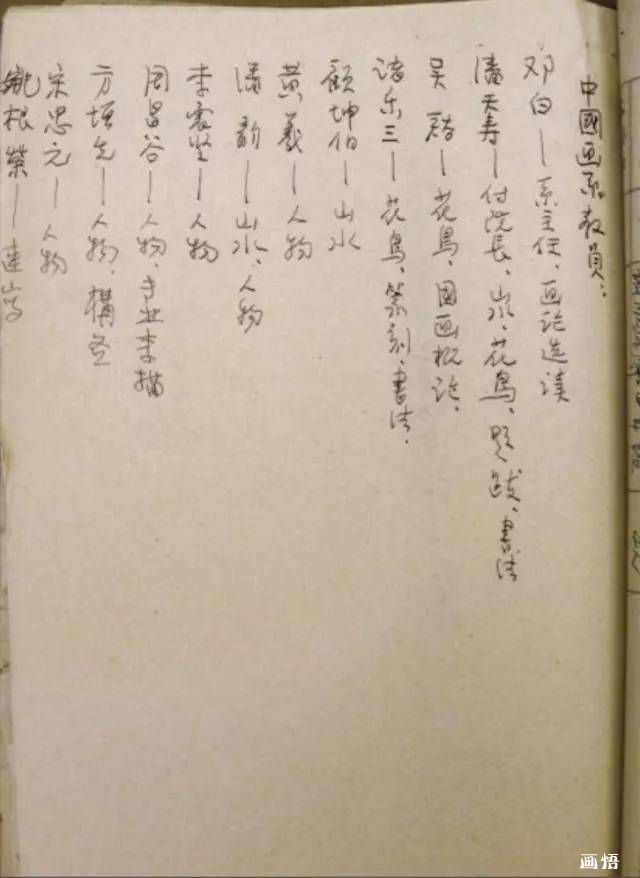 中國画系教員：
邓白—系主任、画论选读
潘天寿—付院長、山水、花鳥、题跋、書法
吴茀—花鳥、国画概论、
诸乐三—花鳥、篆刻、書法、
顾坤伯—山水
黄羲—人物
潘韵—山水、人物
李震坚—人物
周昌谷—人物、手工业素描
方增先—人物、構图
宋忠元—人物
根荣—建
画悟